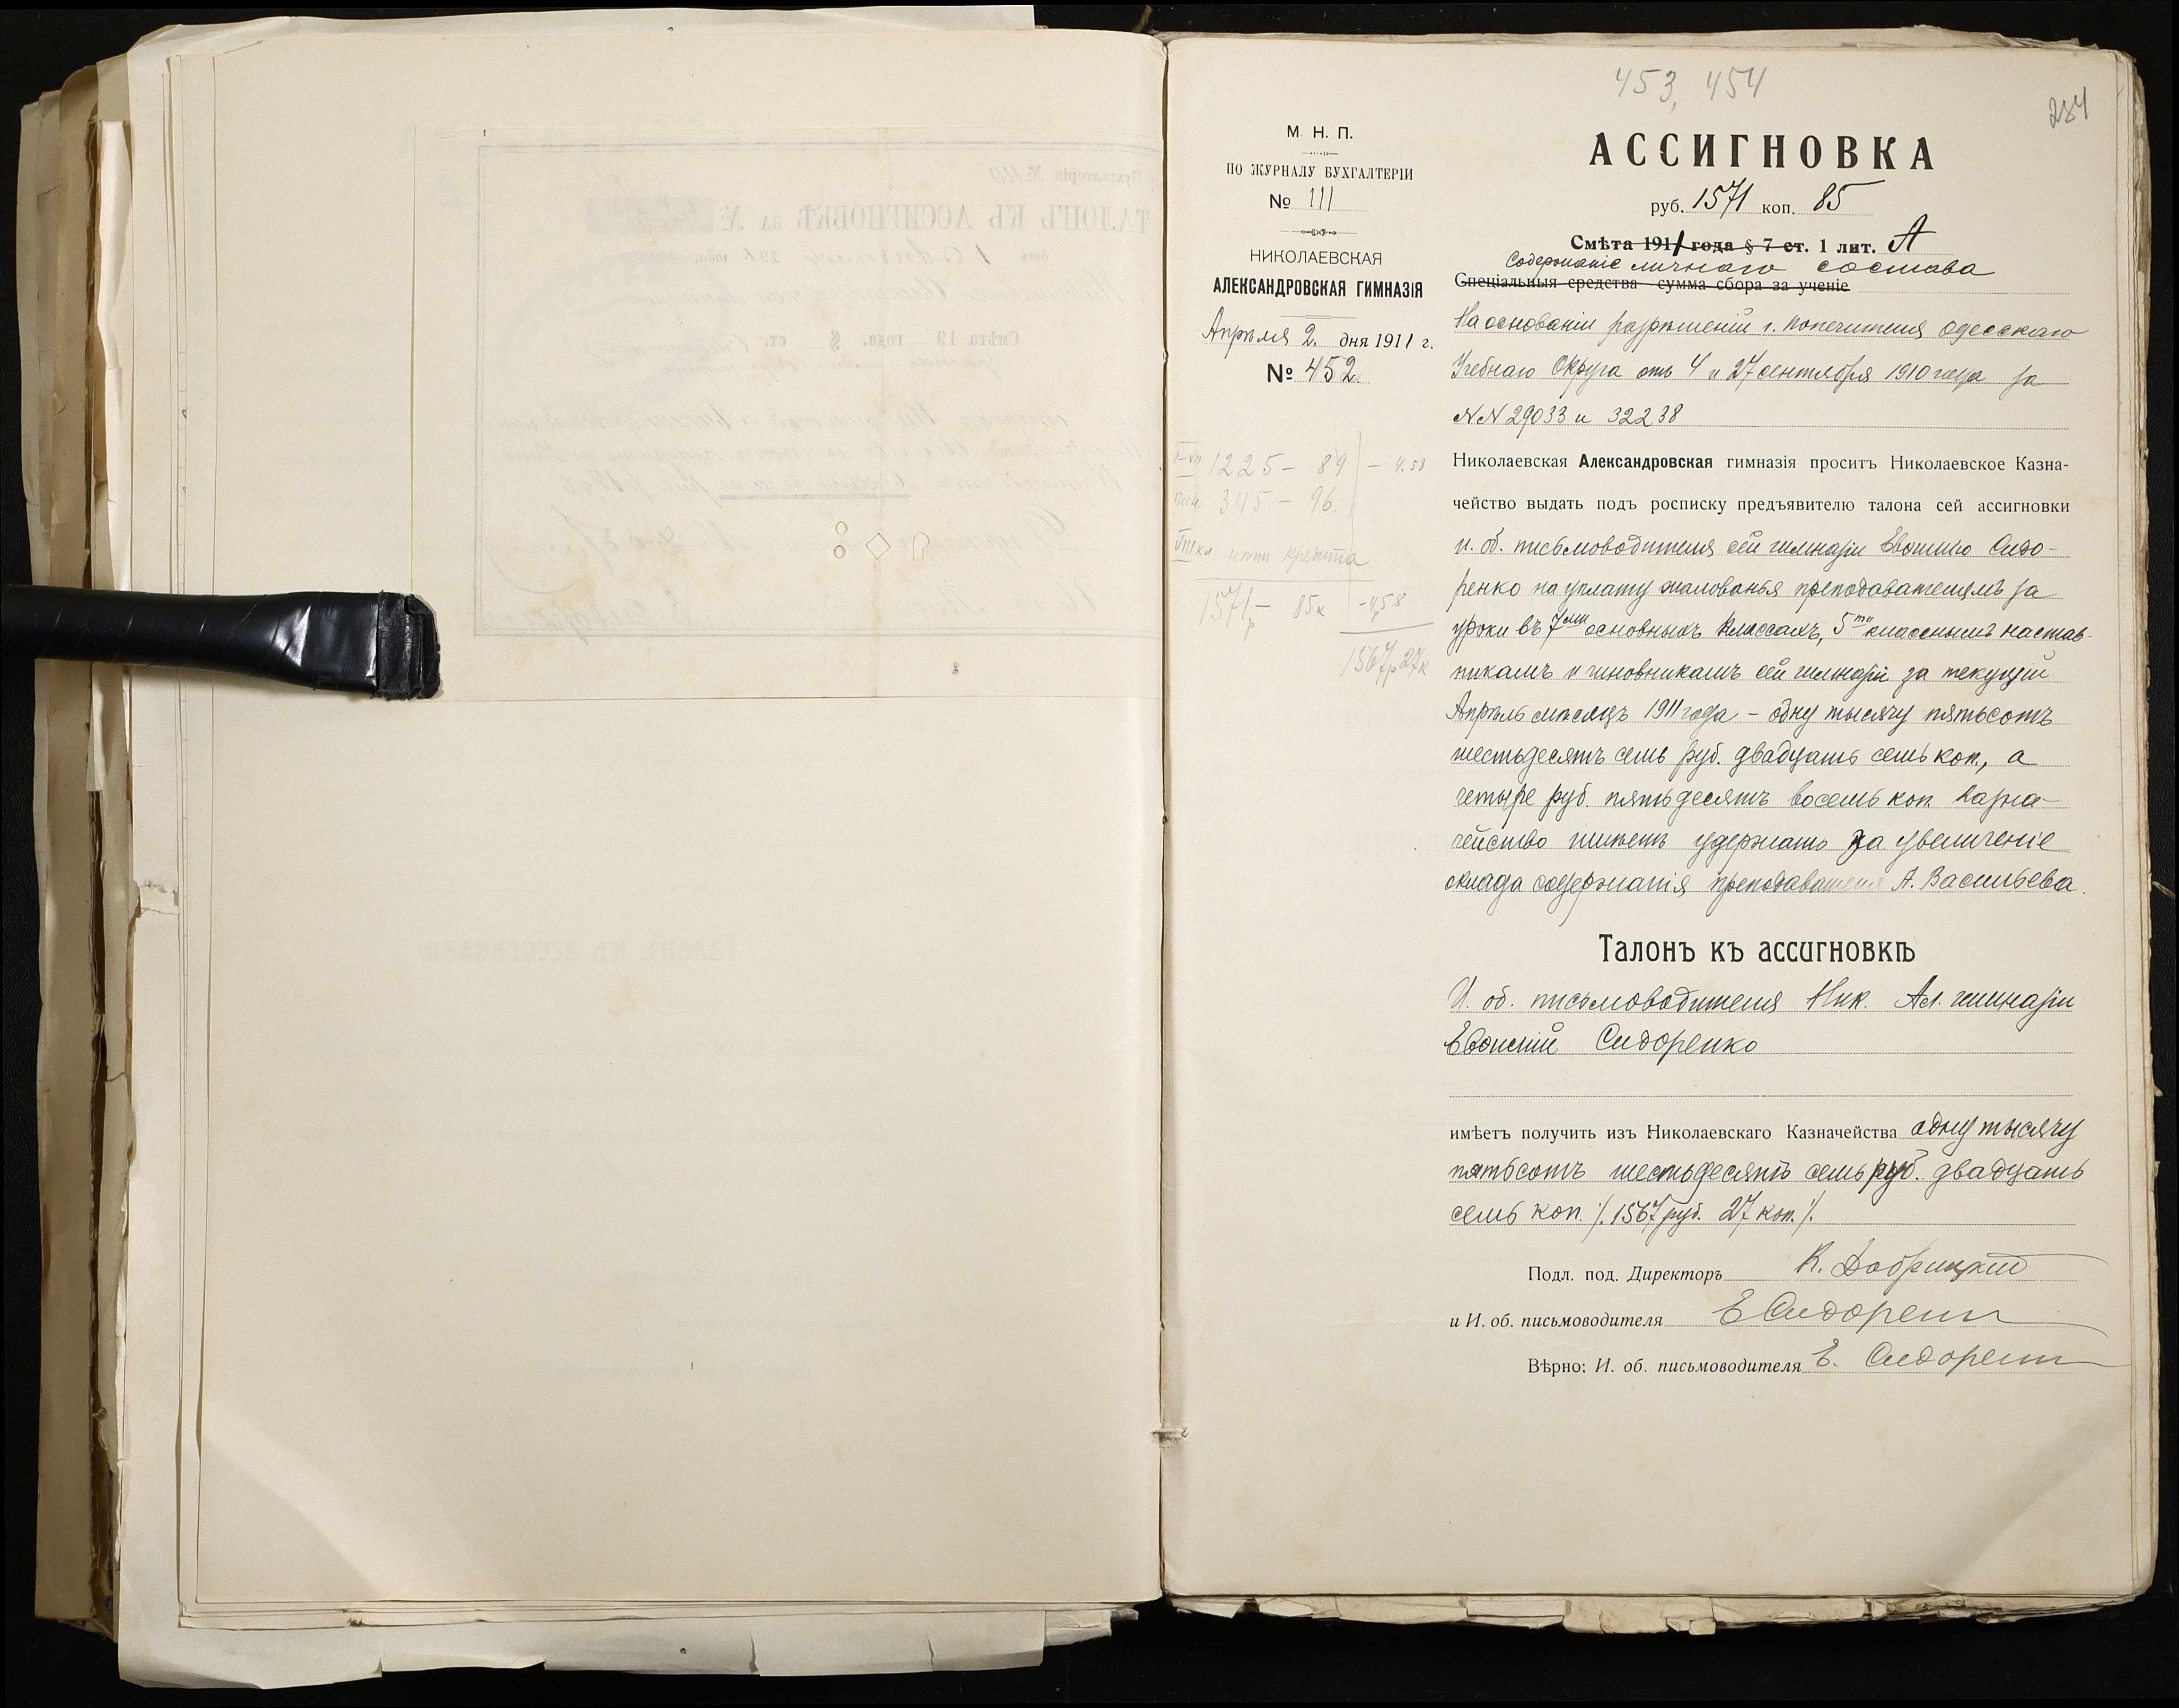 453, 454
284
М. Н. П.
ПО ЖУРНАЛУ БУХГАЛТЕРІИ
№ 111
НИКОЛАЕВСКАЯ
АЛЕКСАНДРОВСКАЯ ГИМНАЗІЯ
Апрѣля 2. дня 1911 г.
№ 452
1225 – 89 – 4.58
345 – 96.
VIII кл. нѣтъ кредита
1571р – 85к – 4р58
1567р27к
АССИГНОВКА
руб. 1571 коп. 85
Смѣта 1911 года § 7 ст. 1 лит. А
Содержаніе личнаго состава
Спеціальныя средства сумма сбора за ученіе
На основаніи разрѣшеній г. Попечителя Одесскаго
Учебнаго Округа отъ 4 и 27 сентября 1910 года за
NN 29033 и 32238
Николаевская Александровская гимназія проситъ Николаевское Казна-
чейство выдать подъ росписку предъявителю талона сей ассигновки
и. об. письмоводителя сей гимназіи Сидо-
ренко на уплату жалованья преподавателямъ за
уроки въ 7ми основныхъ классахъ, 5ти класснымъ настав-
никамъ и чиновникамъ сей гимназіи за текущій
Апрѣль мѣсяцъ 1911 года – одну тысячу пятьсотъ
шестьдесятъ семь руб. двадцать семь коп., а
четыре руб. пятьдесятъ восемь коп. Казна-
чейство имѣетъ удержать за увеличеніе
оклада содержанія преподавателя А. Васильева.
Талонъ къ ассигновкѣ
И. об. письмоводителя Ник. Ал. гимназіи
Сидоренко
имѣетъ получить изъ Николаевскаго Казначейства одну тысячу
пятьсотъ шестьдесятъ семь руб. двадцать
семь коп. /. 1567 руб. 27 коп. /.
Подл. под. Директоръ К. Добрицкій
и И. об. письмоводителя Е Сидоренко
Вѣрно: И. об. письмоводителя Е. Сидоренко